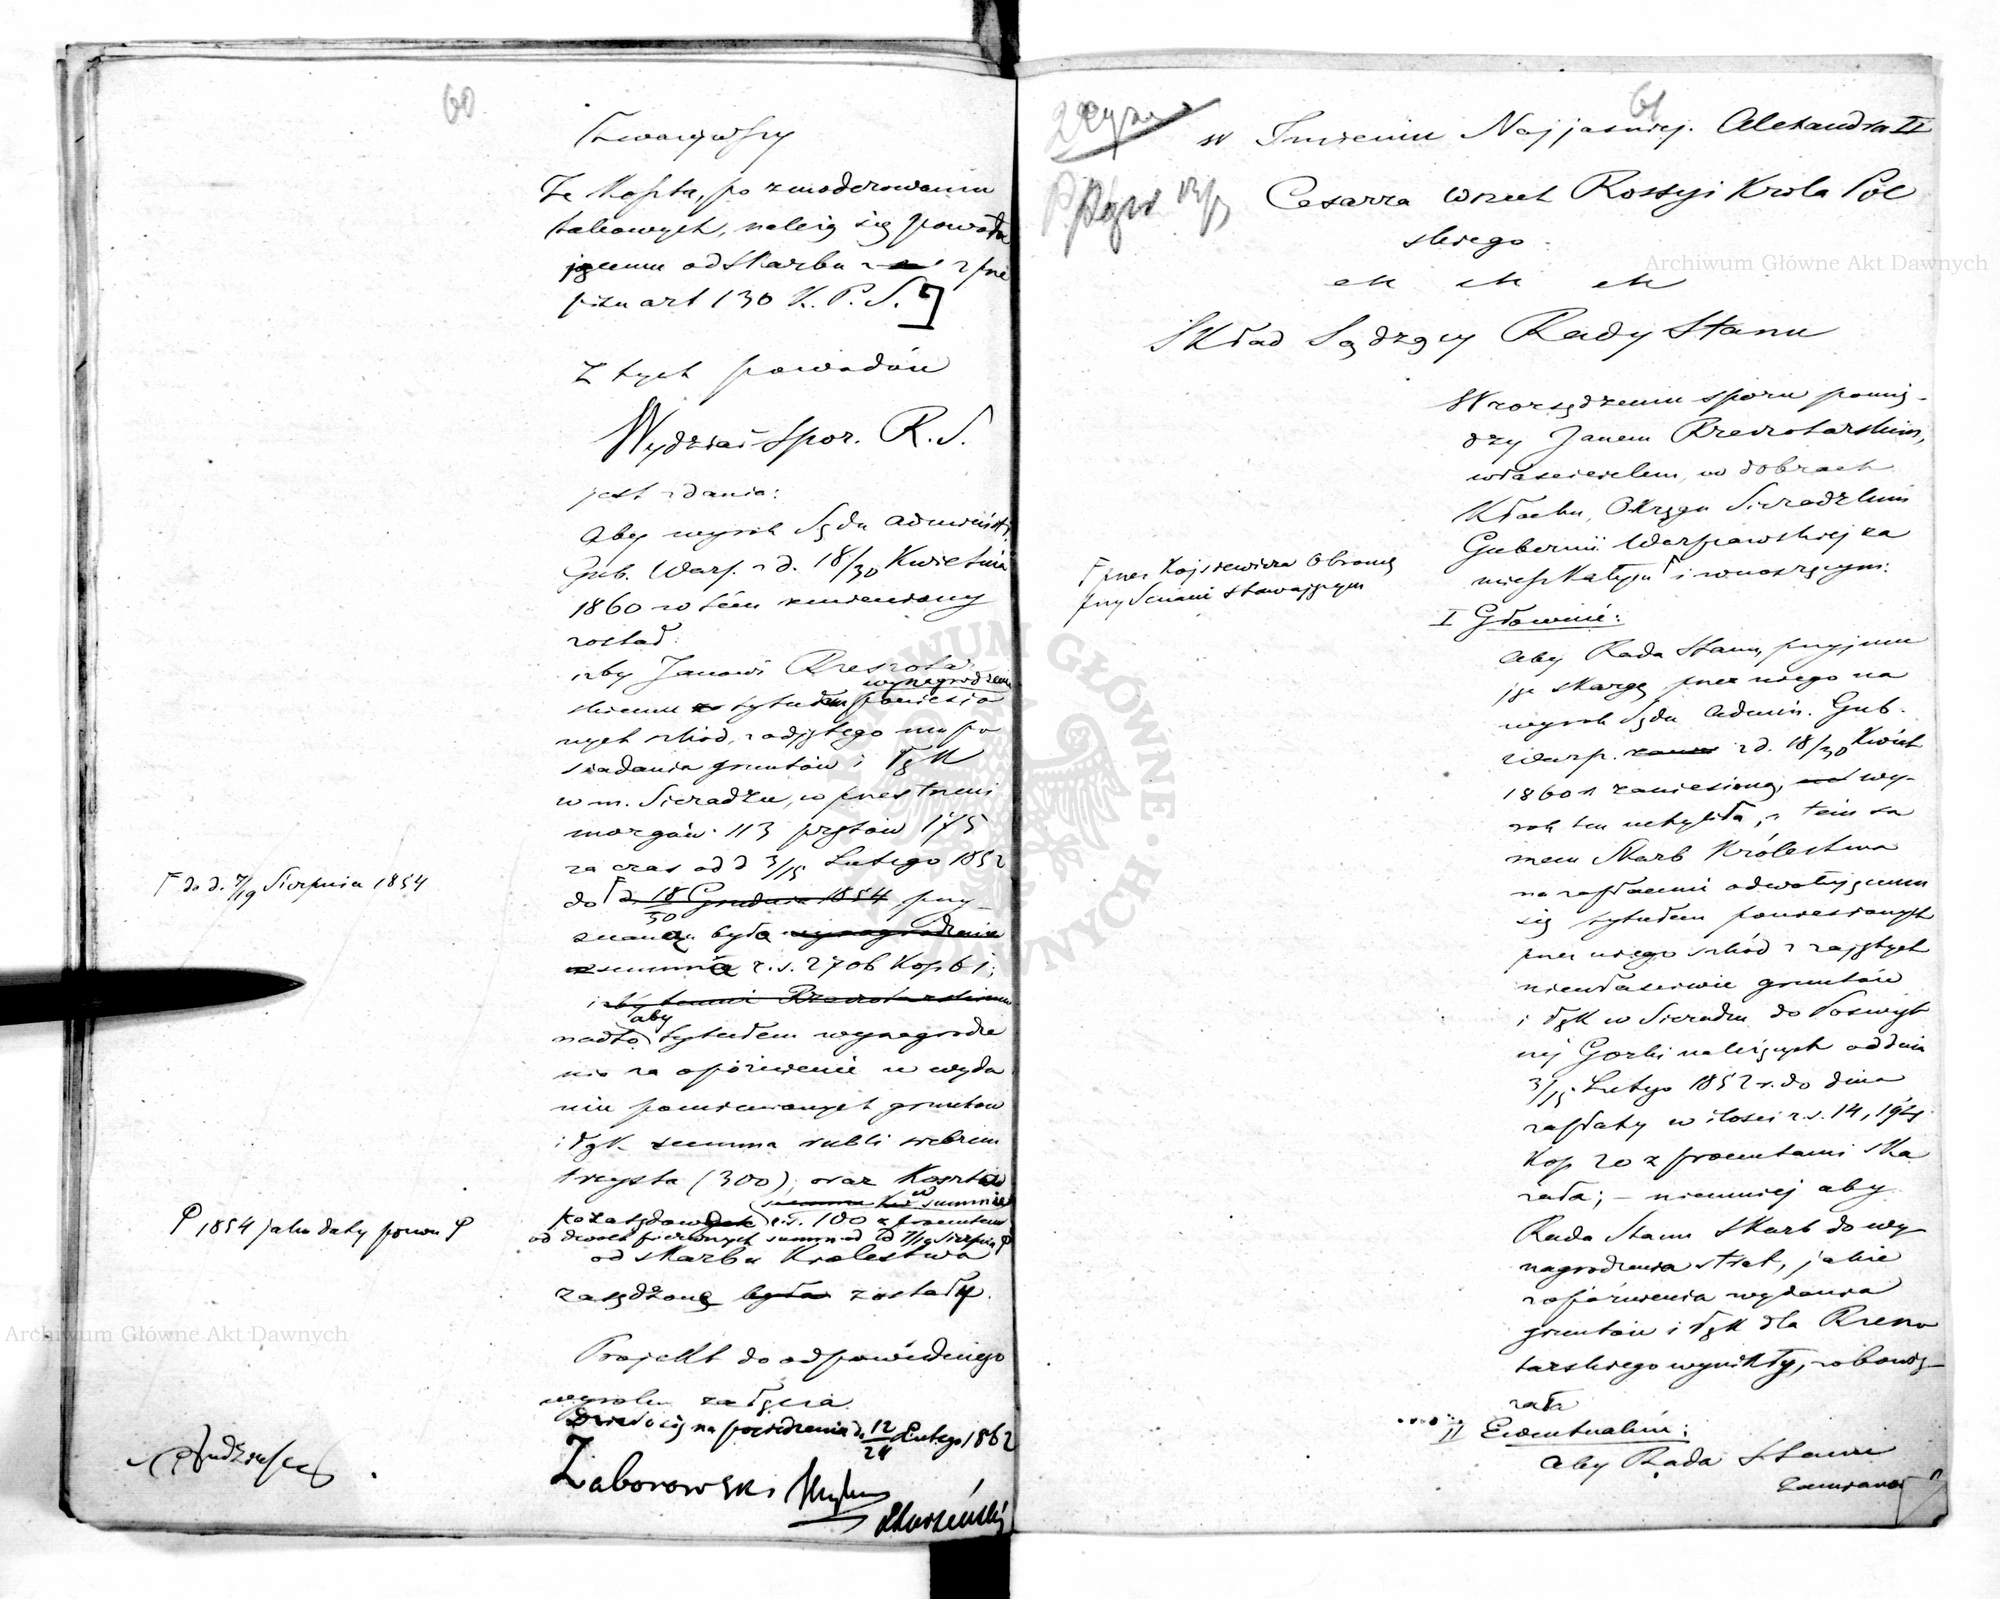 60
Zważywszy
Że koszta, po zmoderowaniu
takowych, należą się powoda
jącemu od Skarbu z prze
pisu art 130 K. P. S.
Z tych powodów
Wydział Spor. R. S.
jest zdania:
aby wyrok Sądu Administr.
Gub. Warsz. z d. 18/30 Kwietnia
1860 w tém zmieniony
został:
iżby Janowi Rzeszota
wynagrodzenia
skiemu tytułem poniesio
nych szkód, z odjętego mu po
siadania gruntów i łąk
w m. Sieradzu, w przestrzeni
morgów 113 prętów 175
za czas od d 3/15 Lutego 1852
do d. 18/30 Grudnia 1854 przy
znaną była wynagrodzenie
summa r. s. 2706 kop 61;
aby
nadto tytułem wynagrodze
nia za opóźnienie w wyda
niu pomienionych gruntów
i łąk summa rubli srebrem
trzysta (300), oraz koszta
w summie
r.s. 100 z procentem
od dwóch pierwszych summ od d 7/19 Sierpnia
od Skarbu Królestwa
zasądzone była zostały.
Projekt do odpowiedniego
wyroku załącza
na posiedzeniu d. 12/24 Lutego 1862
Zaborowski
Skarżeński
Γ do d. 7/19 Sierpnia 1854
1854 jako daty pozwu
61
w Imieniu Najjaśniej. Alexandra II
Cesarza Wszech Rossyi Króla Pol
skiego.
etc etc etc
Skład Sądzący Rady Stanu
W rozsądzeniu sporu pomię-
dzy Janem Rzeszotarskim,
właścicielem, w dobrach
Kłocku, Okręgu Sieradzkim
Gubernii Warszawskiej za
mieszkałym Γ i wnoszącym:
Γ przez Kajsiewicza Obrońcę
przy Senacie stawającym
I Głównie:
aby Rada Stanu, przyjmu
jąc skargę przez niego na
wyrok Sądu Admin. Gub.
Warsz. z d. 18/30 Kwiet
1860 r zaniesioną, wy-
rok ten uchyliła, a tém sa
mem Skarb Królestwa
na zapłacenie odwołującemu
się tytułem poniesionych
przez niego szkód z zajętych
niewłaściwie gruntów
i łąk w Sieradzu do Poświęt
nej Górki należących od dnia
3/15 Lutego 1852 r. do dnia
zapłaty w ilości r.s. 14,
kop 20 z procentami ska
zała; – niemniej aby
Rada Stanu Skarb do wy-
nagrodzenia strat, jakie
z opóźnienia wydania
gruntów i łąk dla Rzeszo
tarskiego wynikły, zobowią-
zała
II Ewentualnie:
aby Rada Stanu